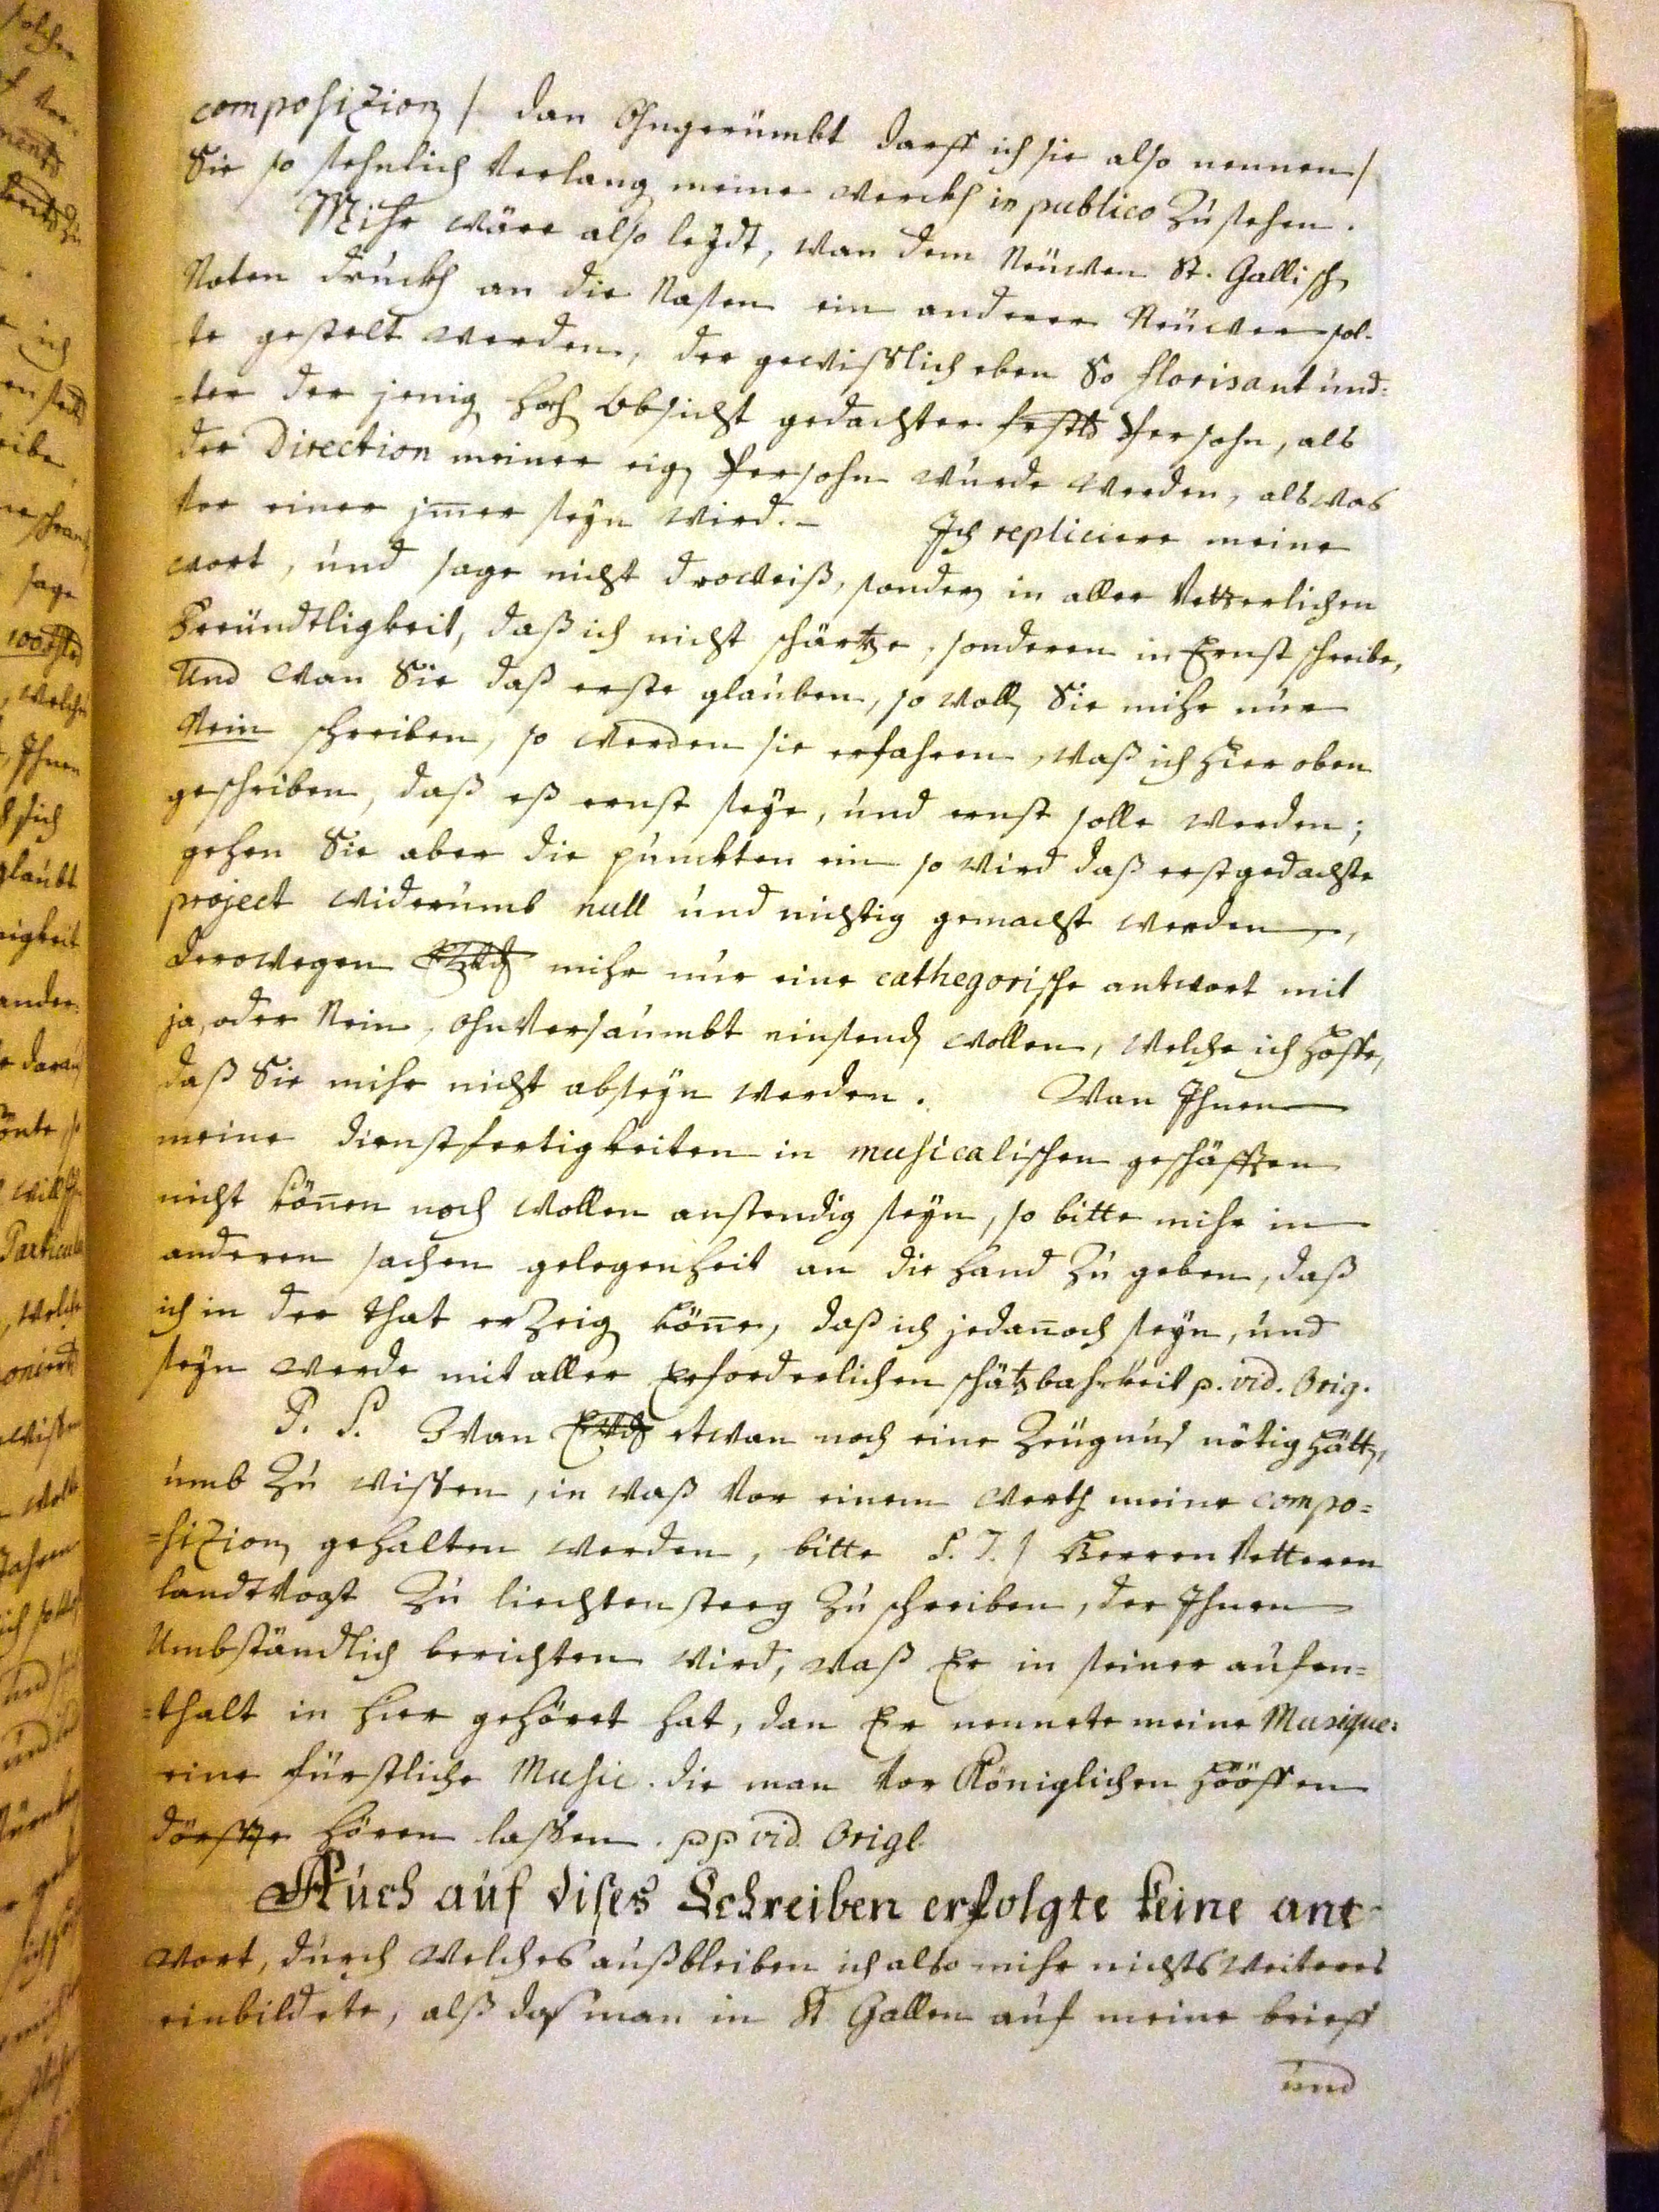 composition / dan Ohngerümbt darff ich sie also nennen /
Sie so sehnlich verlang meine werckh in publico Zu sehen.
Mihr wäre also leydt, wan dem Neüwen St. Gallisch
Noten druckh an die Nasen ein anderer Neüwer sol-
te gestelt werden, der gewißlich eben So florisant und-
-ter der jenig hoch Obsicht gedachter Persohn, als
der Direction meiner eig Persohn wurde werden, als was
vor einer jmer seyn wird.- Ich repliciere meine
wort, und sage nicht droweiß, sondern in aller Vetterlichen
Freündtligkeit, daß ich nicht schärtze, sonderen in Ernst schreibe,
Und wan Sie daß erste glauben, so woll Sie mihr nur
Nein schreiben, so werden sie erfahren, waß ich hier oben
geschriben, daß eß ernst seye, und ernst solle werden;
gehen Sie aber die puncten ein so wird daß erstgedachte
project widerumb null und nichtig gemacht werden,
derowegen mihr nur eine cathegorische antwort mit
ja, oder Nein, ohnversaumbt einsend wollen, welche ich hoffe,
daß Sie mihr nicht abseyn werden. Wan Ihnen
meine dienstfertigkeiten in musicalischen geschäfften
nicht könen noch wollen anstendig seyn, so bitte mihr in
anderen sachen gelegenheit an die hand Zu geben, daß
ich in der that erZeig köne, daß ich jedanoch seyn, und
seyn werde mit aller Erforderlichen schätzbahrkeit p. vid. Orig.
P. S. Wan etwan noch eine Zeügnus nötig hätt,
umb Zu wissen, in waß vor einem werth meine compo=
=sition gehalten werden, bitte S. T. / Herren Vetteren
landtvogt Zu liechtensteeg Zu schreiben, der Ihnen
Umbständlich berichten wird, waß Er in seiner aufen=
=thalt in hier gehöret hat, dan Er nennete meine Musique:
eine fürstliche Music. die man vor Königlichen hööffen
dörffte hören lassen. pp vid. Origl.
Auch auf dises Schreiben erfolgte keine ant-
wort, durch welches außbleiben ich also mihr nichts weiteres
einbildete, alß das man in St. Gallen auf meine brieff
und